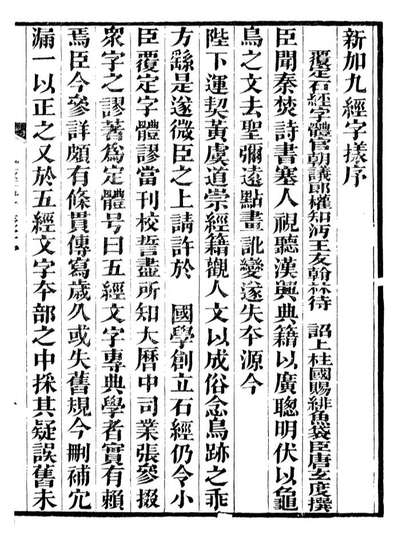 新加九經字㨾序
覆定石經字體官朝議郎權知沔王友翰林待　詔上柱國賜緋魚袋臣唐玄度撰
臣聞秦焚詩書塞人視聽漢興典籍以廣聰明伏以龜
鳥之文去聖彌遠點畫訛變遂失夲源今
陛下運契黃虞道崇經籍觀人文以成俗念鳥跡之乖
方繇是遂微臣之上請許於　國學創立石經仍令小
臣覆定字體謬當刊校誓盡所知大曆中司業張參掇
衆字之謬著為定體号曰五經文字專典學者實有賴
焉臣今參詳頗有條貫傳寫歲久或失舊規今刪補冗
漏一以正之又於五經文字夲部之中採其疑誤舊未